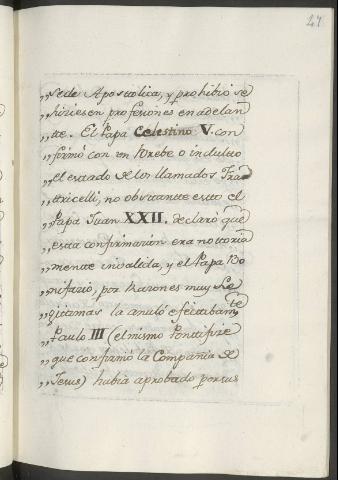 27
„sede Apostolica, y prohibió se
„hiciesen profesiones en adelan
„te. El Papa Celestino V. con
„firmó con un Brebe o indulto
„el estado de los llamados Fra
„tricelli, no obstante esto el
„Papa Juan XXII. declaró que
„esta confirmacion era notoria
„mente invalida, y el Papa Bo
„nifacio, por razones muy Le
„gitimas la anuló efectibamte
„Paulo III (el mismo Pontifice
„que confirmó la Compañia de
„Jesus) habia aprobado por sus